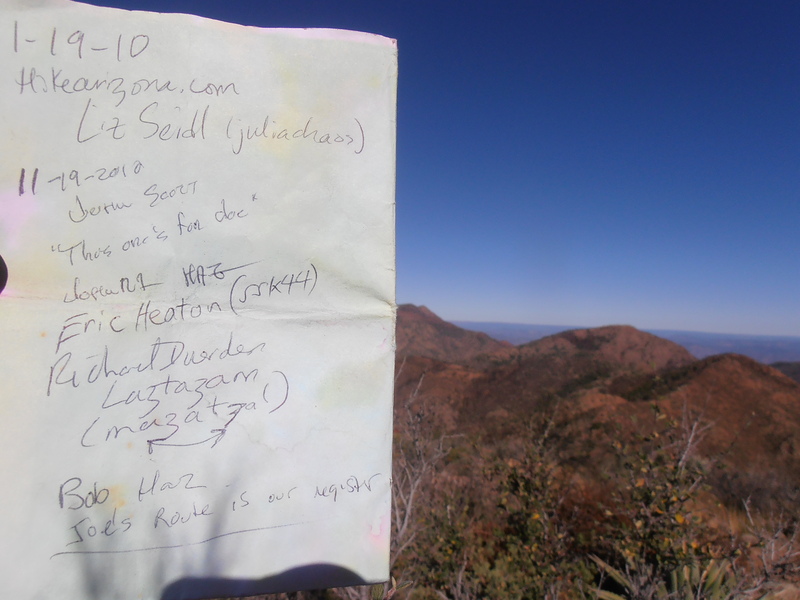 1-19-10
Hikearizona.com
Liz Seidl (juliachaos)
11-19-2010
Scott
"This one's for doc"
HAZ
Eric Heaton (ssk44)
Richard Duerden
Laztazam
(mazatzal)
Bob Haz
Joe's Route is our register